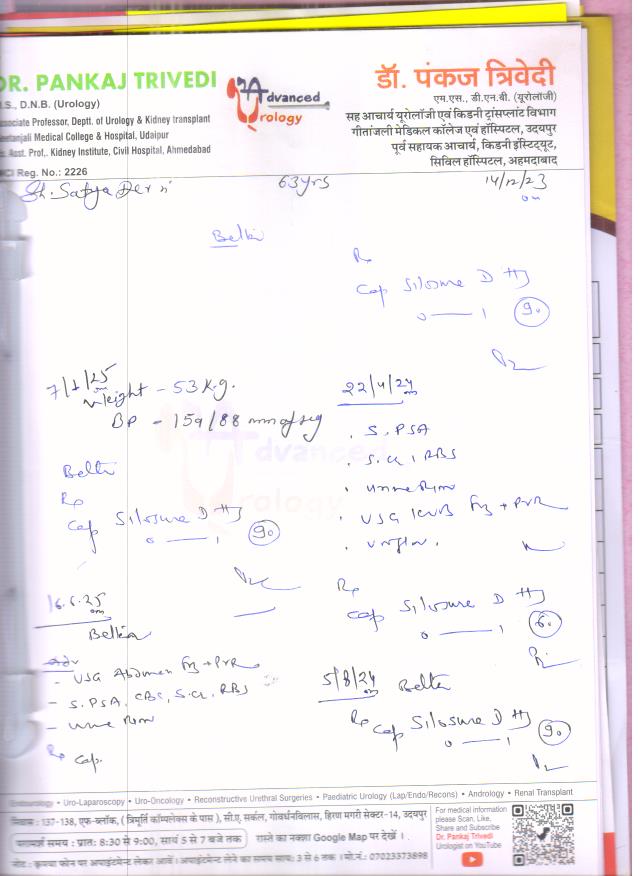 DR. PANKAJ TRIVEDI
M.S., D.N.B. (Urology)
Associate Professor, Deptt. of Urology & Kidney transplant
Geetanjali Medical College & Hospital, Udaipur
Asst. Prof,. Kidney Institute, Civil Hospital, Ahmedabad
Reg. No.: 2226
Advanced
Urology
डॉ. पंकज त्रिवेदी
एम.एस., डी.एन.बी. (यूरोलॉजी)
सह आचार्य यूरोलॉजी एवं किडनी ट्रांसप्लांट विभाग
गीतांजली मेडिकल कॉलेज एवं हॉस्पिटल, उदयपुर
पूर्व सहायक आचार्य, किडनी इंस्टिट्यूट,
सिविल हॉस्पिटल, अहमदाबाद
Sh. Satya Dev
63yrs
14/12/23
on
Rx
Cap Silosure D
0 — 1 90
22/4/24
on
. S. PSA
. S. Cr, RBS
. USG KUB + PVR
Rx
Cap Silosure D
0 — 1 60
5/8/24
on
Rx Cap Silosure D
0 — 1 90
7/1/25
on
Weight - 53 K.g.
BP - 159/88 mm of Hg
Rx
Cap Silosure D
0 — 1 90
16.6.25
on
adv
- USG Abdomen + PVR
- S. PSA, CBC, S. Cr, RBS
- Urine
Rx Cap.
Advanced
Urology
Endourology • Uro-Laparoscopy • Uro-Oncology • Reconstructive Urethral Surgeries • Paediatric Urology (Lap/Endo/Recons) • Andrology • Renal Transplant
निवास : 137-138, एफ-ब्लॉक, ( त्रिमूर्ति कॉम्पलेक्स के पास ), सी.ए. सर्कल, गोवर्धनविलास, हिरण मगरी सेक्टर-14, उदयपुर
परामर्श समय : प्रात: 8:30 से 9:00, सायं 5 से 7 बजे तक रास्ते का नक्शा Google Map पर देखें ।
नोट : कृपया फोन पर अपाइंटमेन्ट लेकर आवें । अपाइंटमेन्ट लेने का समय सायं: 3 से 6 तक । मो.नं.: 07023373898
For medical information
please Scan, Like,
Share and Subscribe
Dr. Pankaj Trivedi
Urologist on YouTube